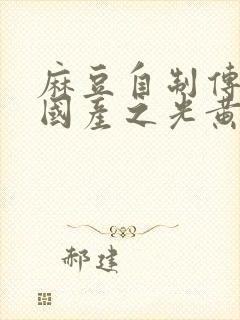 麻豆自制傳
國產之光黃
郝建